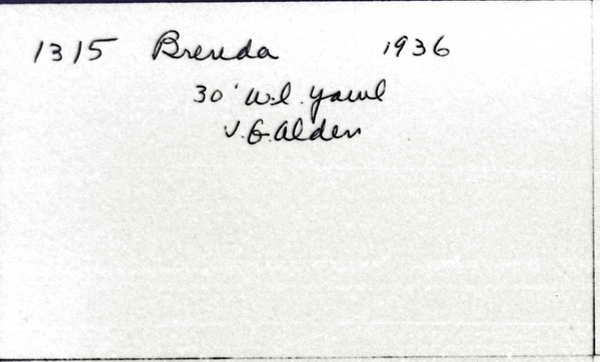 1315 Brenda 1936
30' w.l. yawl
J.G. Alden